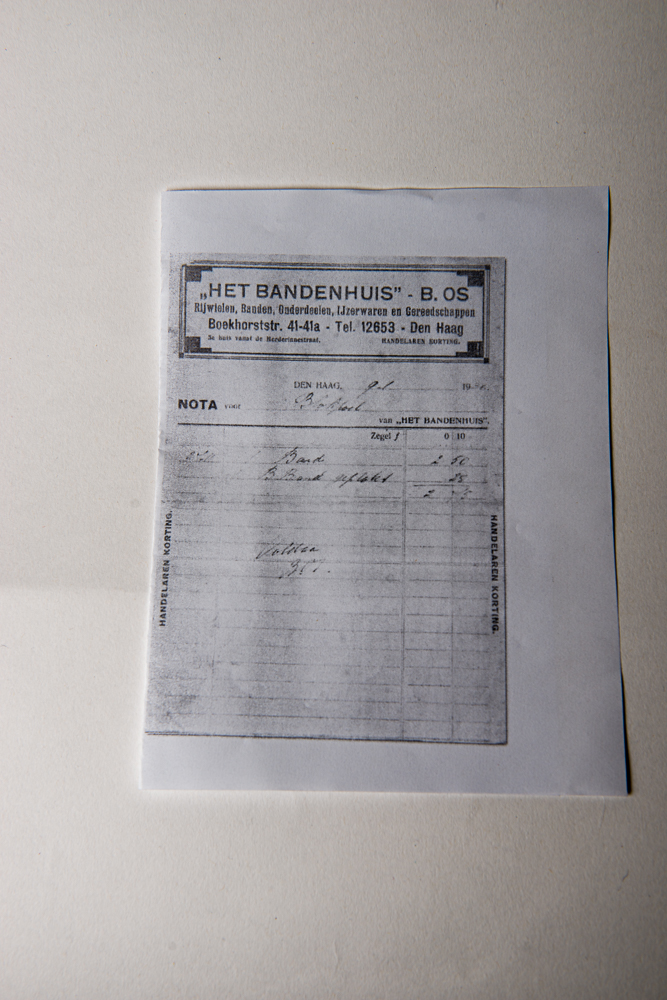 „HET BANDENHUIS” - B. OS
Rijwielen, Banden, Onderdeelen, IJzerwaren en Gereedschappen
Boekhorststr. 41-41a - Tel. 12653 - Den Haag
3e huis vanaf de Herderinnestraat. HANDELAREN KORTING.
DEN HAAG, 19
NOTA voor
van „HET BANDENHUIS”.
Zegel f 0 10
Band 2 50
Band geplakt 25
2
Voldaan
HANDELAREN KORTING.
HANDELAREN KORTING.